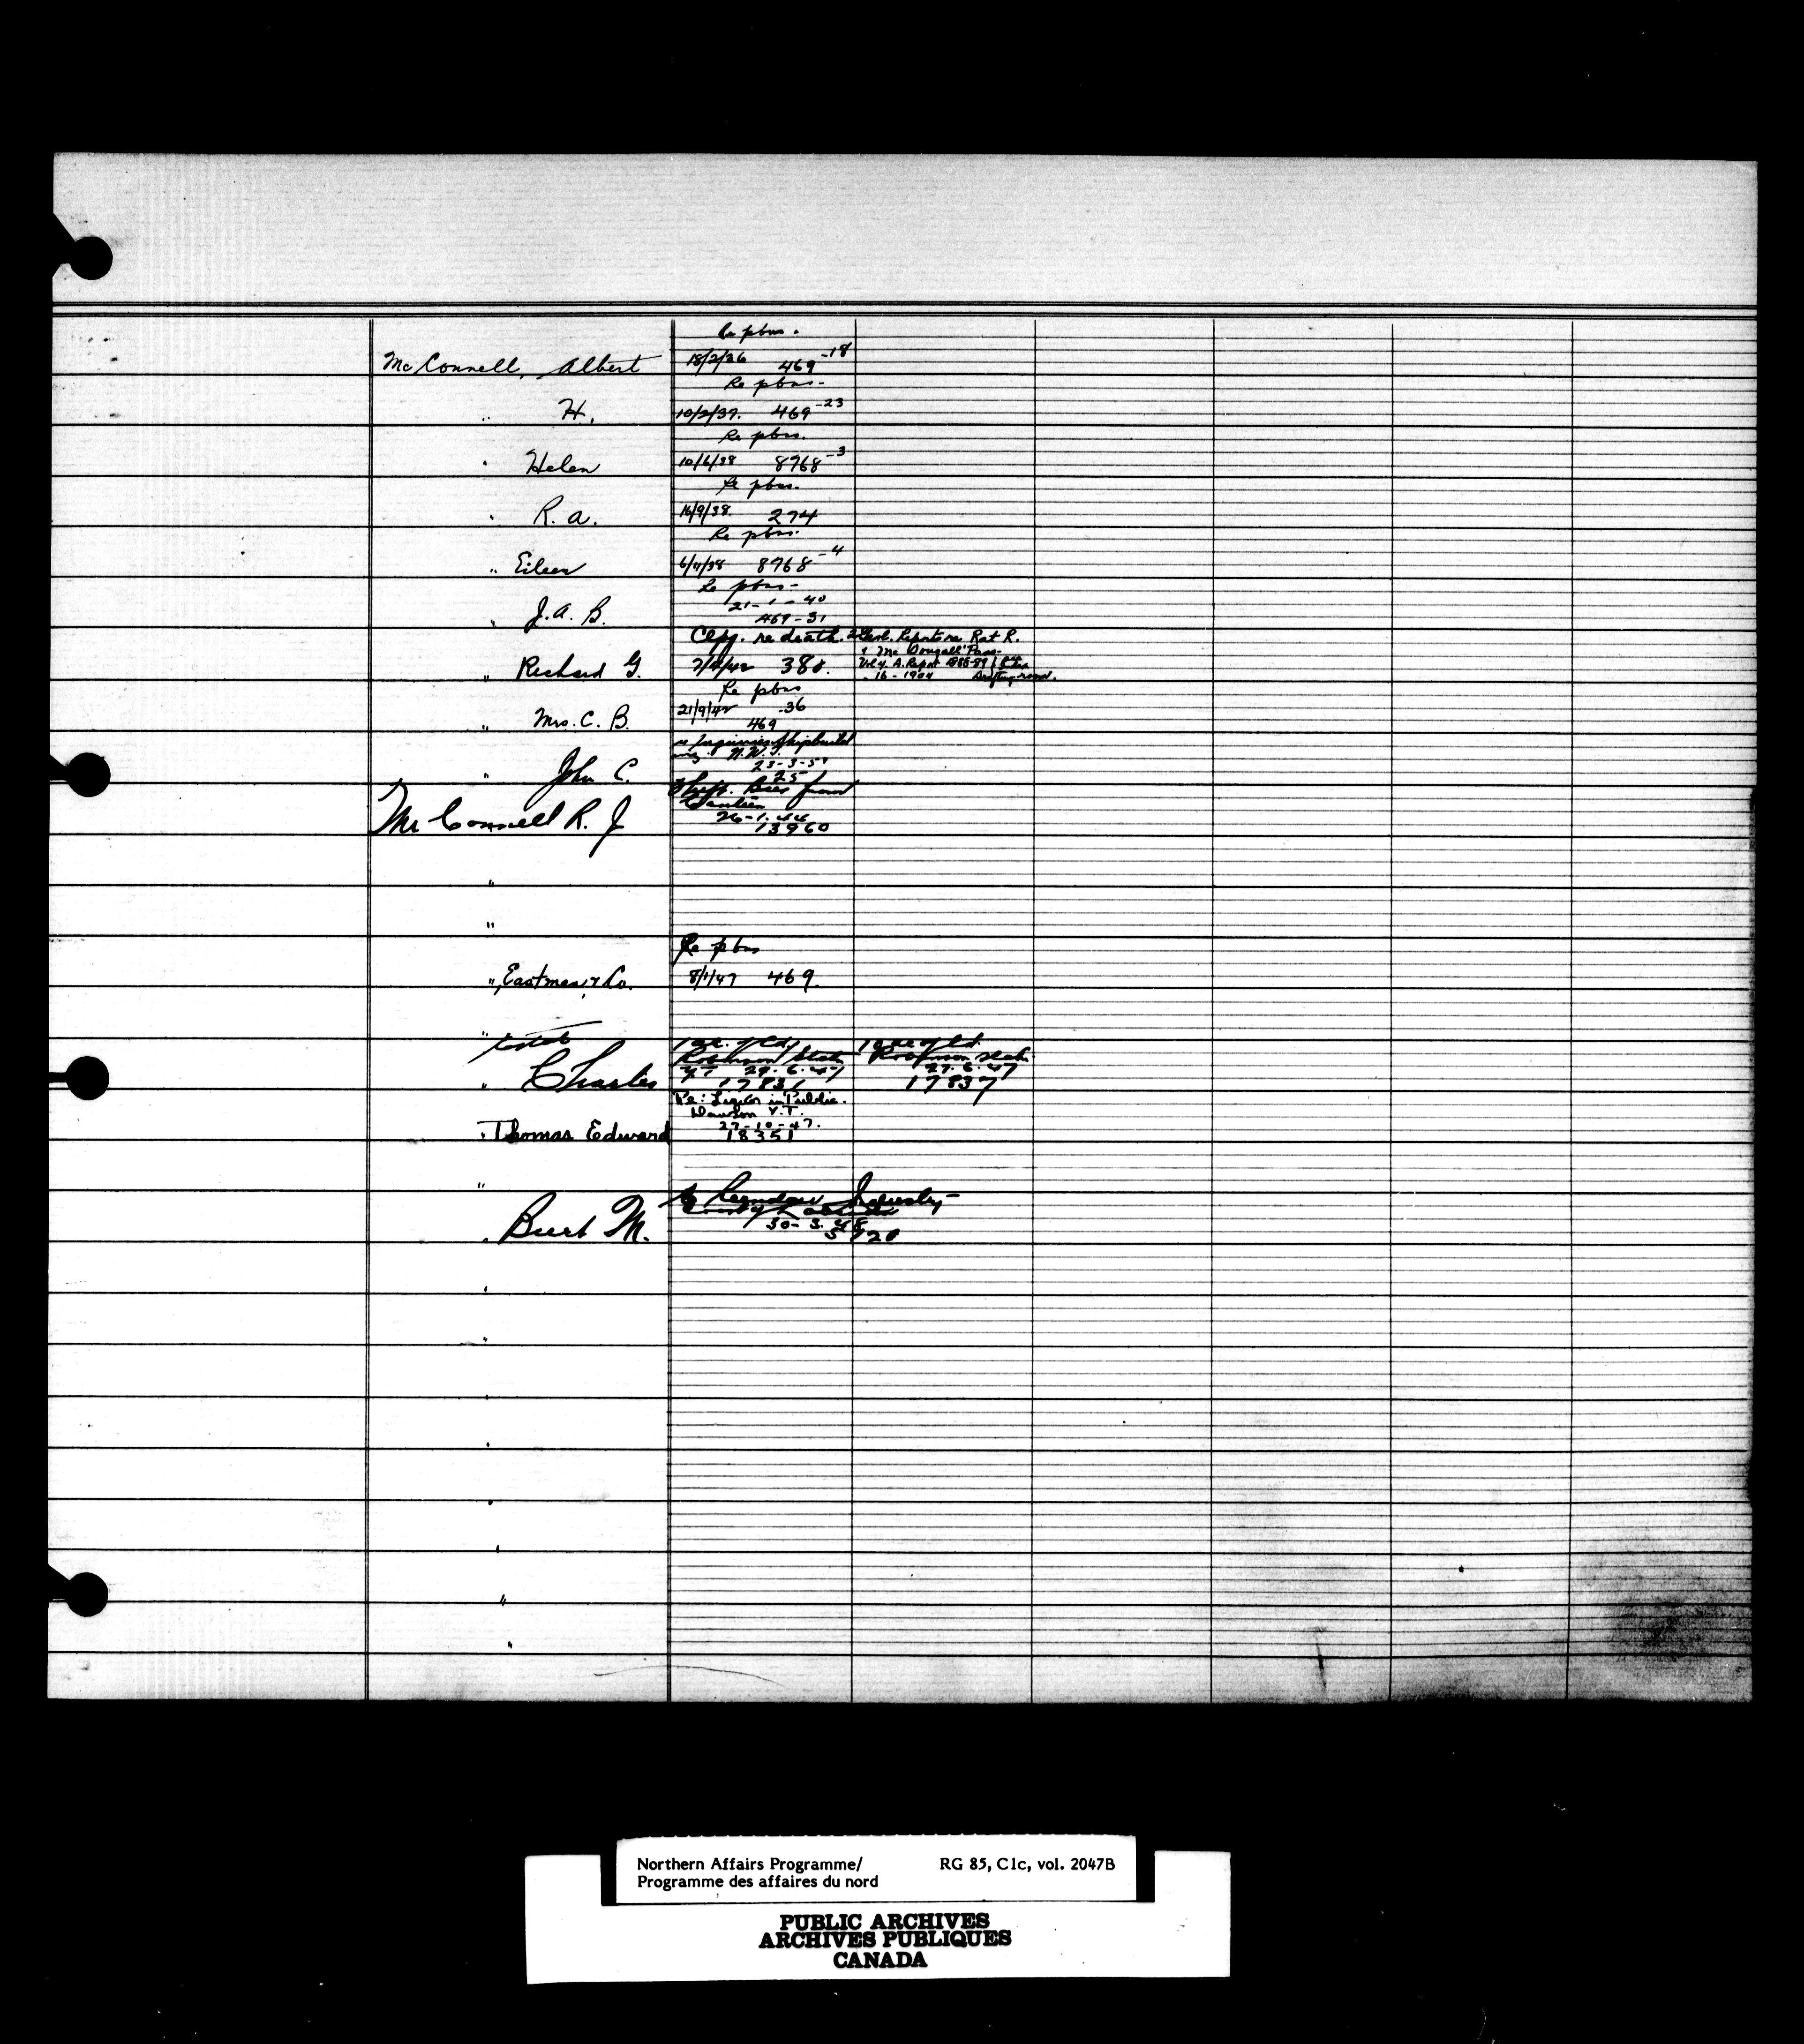 Re pbns.
McConnell, Albert 18/2/36 469-18
Re pbns.
" H. 10/2/37. 469-23
Re pbns.
" Helen 10/6/38 8768-3
Re pbns.
" R. A. 16/9/38. 274
Re pbns.
" Eileen 6/4/38 8768-4
Re pbns-
21-1-40
" J. A. B. 469-31
Clpg. re death. Geol. Report re Rat R.
& McDougall Pass-
" Richard G. 388. Vol 4. A. Report 1888-89
16-1904 Drafting room.
Re pbns
21/9/42 -36
" Mrs. C. B. 469
Shipbuild
ing N.W.T.
23-3-
" John C. 25
from
McConnell R. J 26-1.44
13960
"
"
Re pbns
" Eastman & Co. 8/1/47 469.
"
Estate 1 ac. of Ld, 1 acre of Ld.
Robinson Robinson
Y T 27.6.47 27.6.47
" Charles 17831 17837
Re: Liquor in Public.
Dawson Y.T.
27-10-47.
" Thomas Edward 18351
"
Re Reindeer Industry-
30-3.48
" Burt M. 5720
"
"
"
"
"
"
"
"
Northern Affairs Programme/ RG 85, C1c, vol. 2047B
Programme des affaires du nord
PUBLIC ARCHIVES
ARCHIVES PUBLIQUES
CANADA